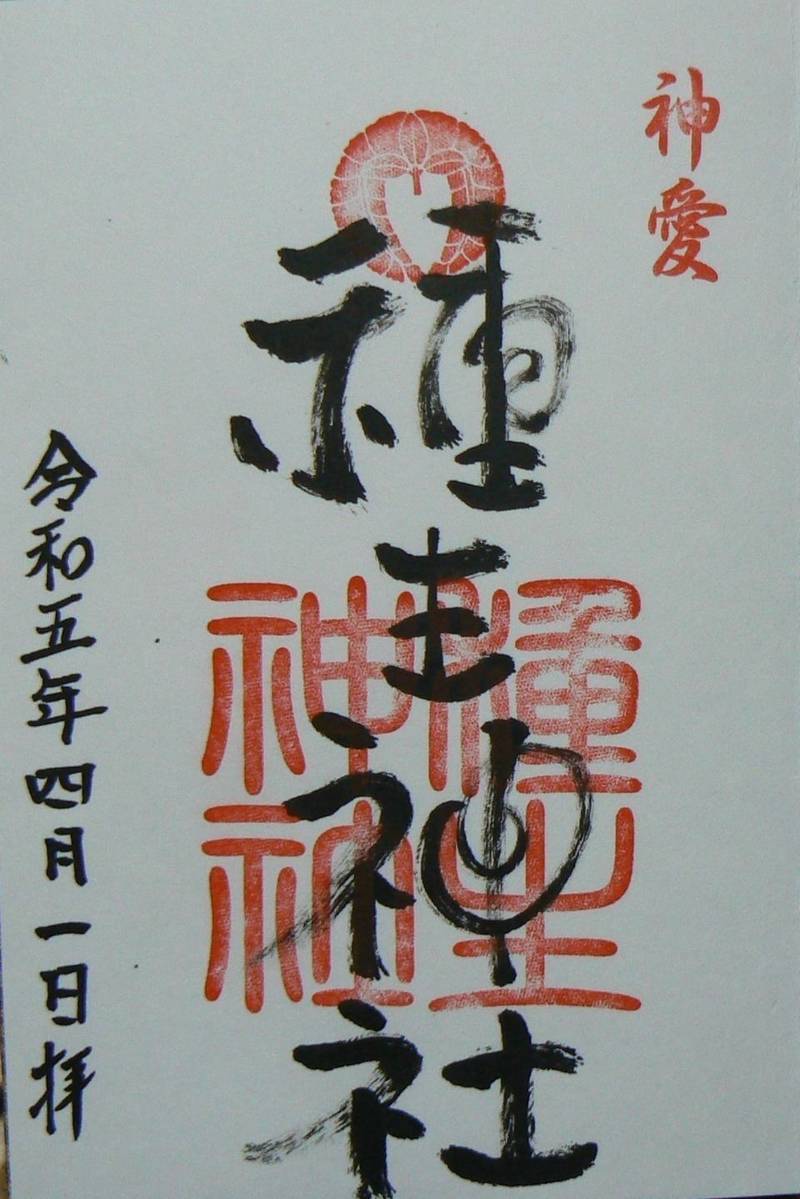 神愛
種生神社
種生
神社
令和五年四月一日拝